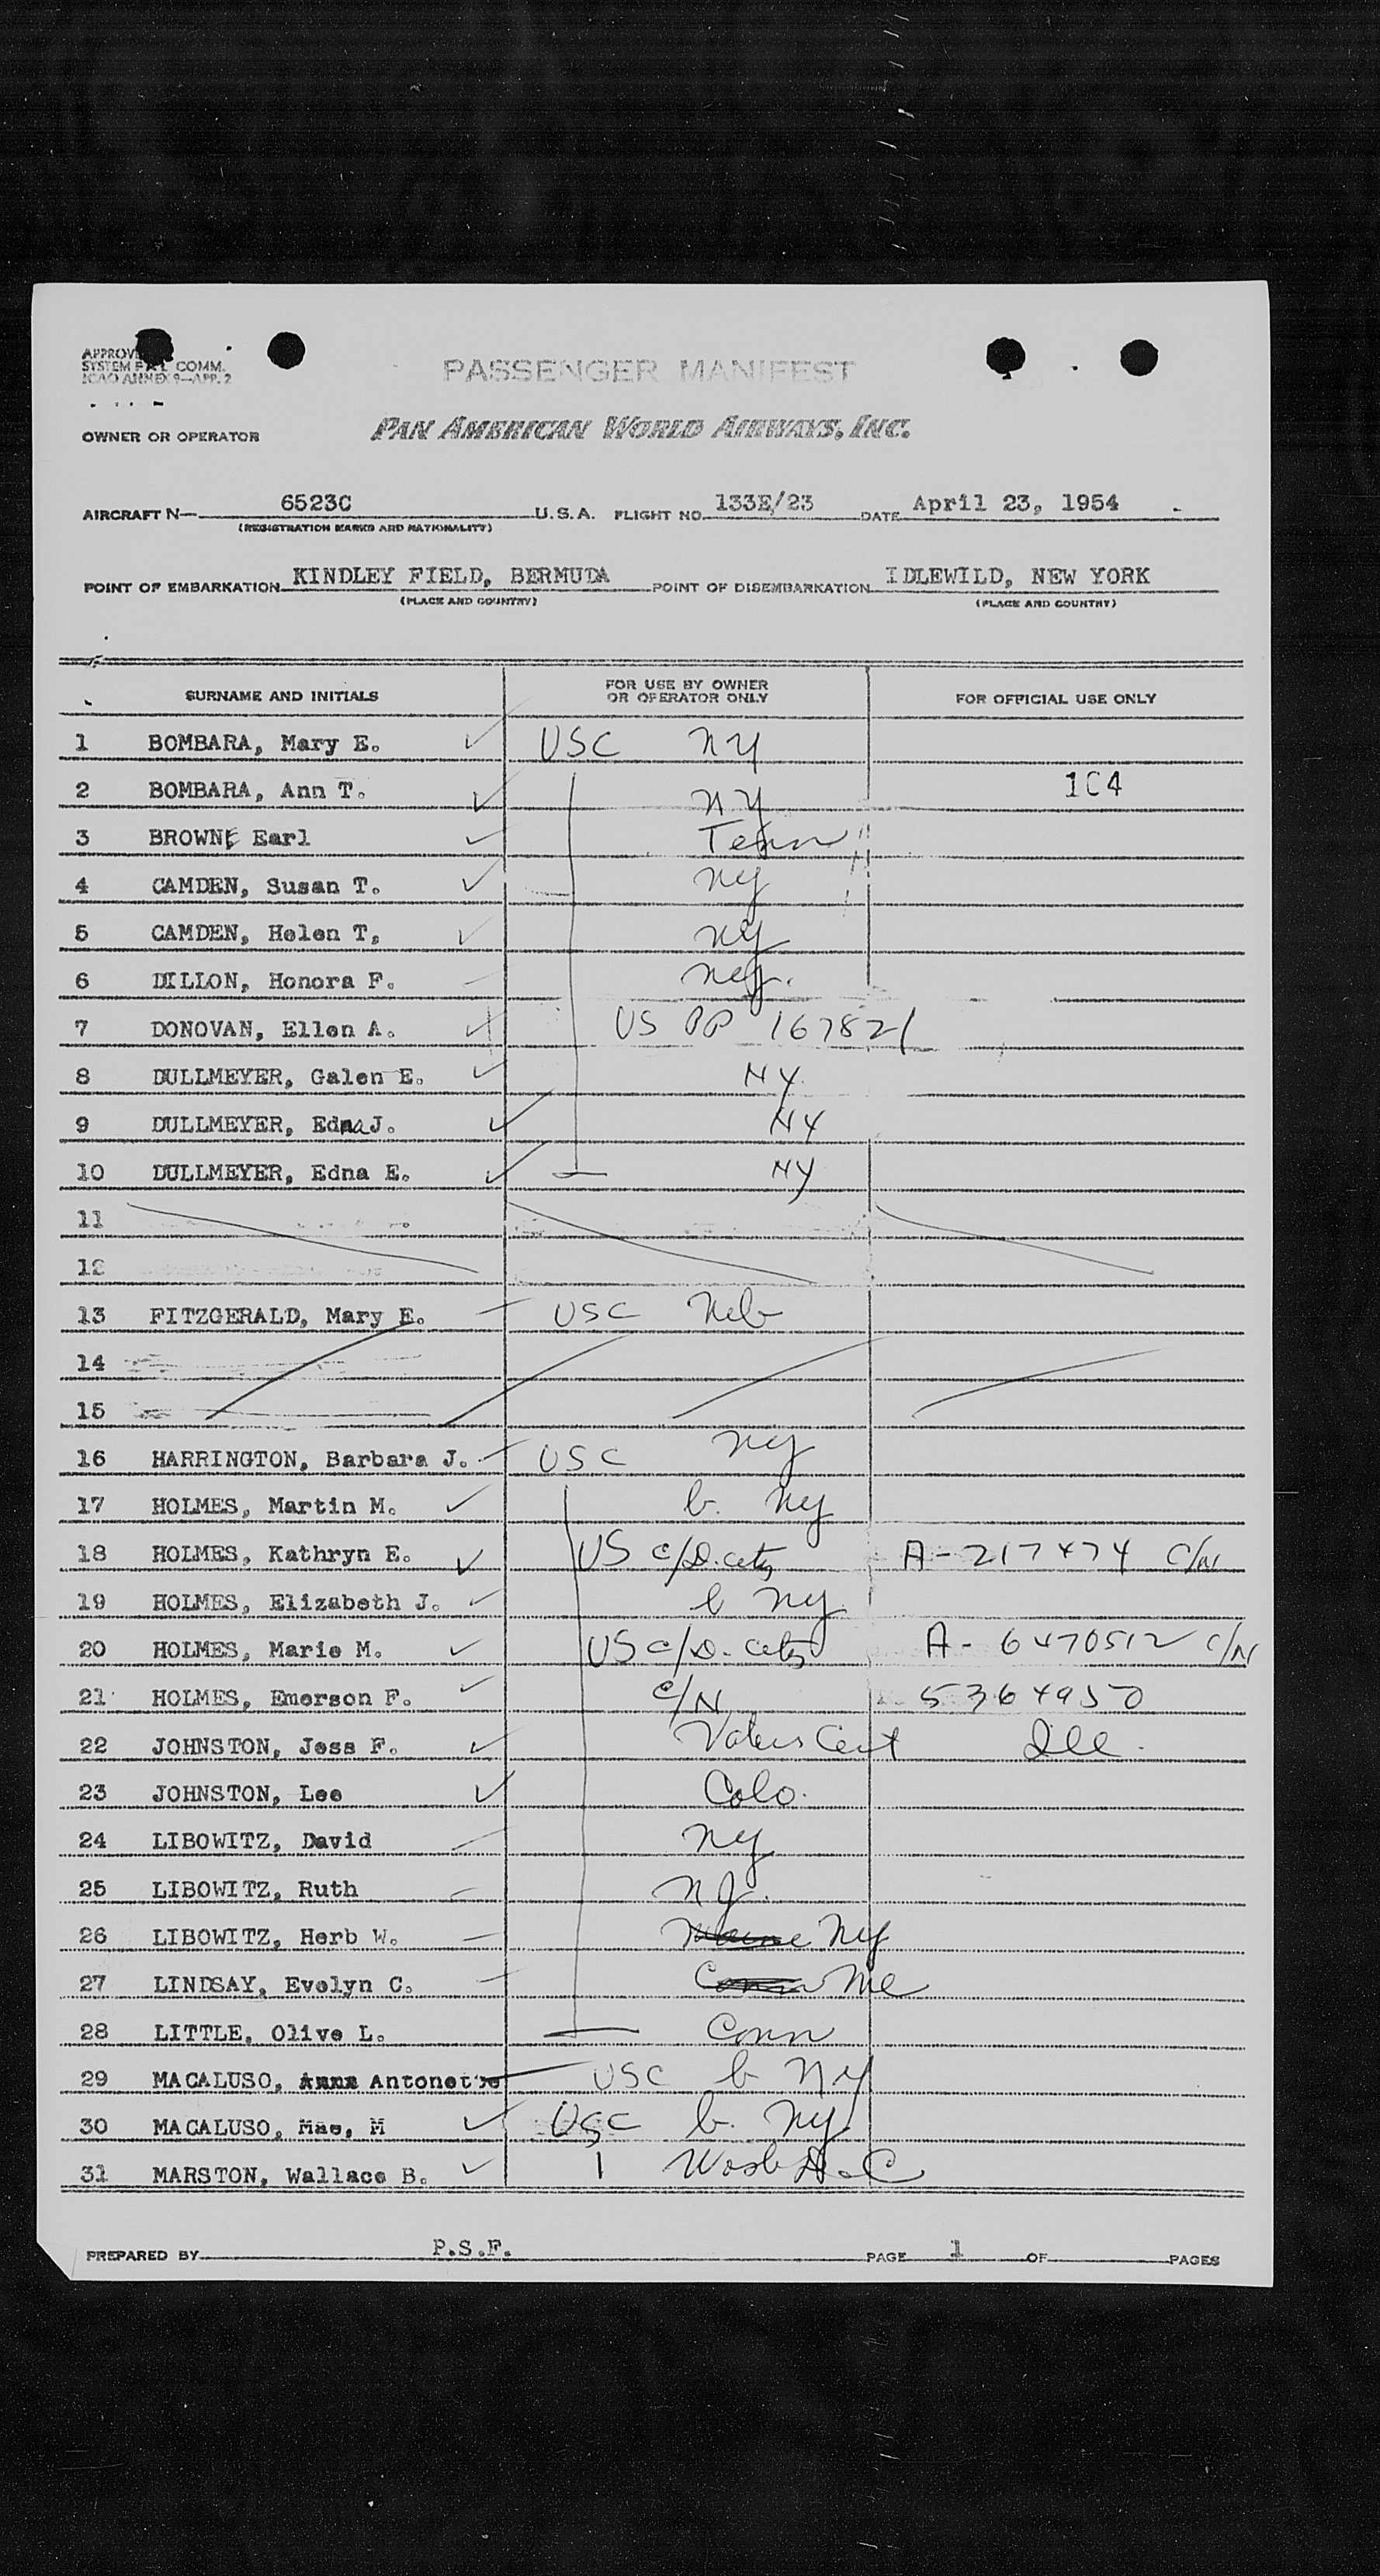 APPROVED
SYSTEM FAL COMM.
ICAO ANNEX 9—APP. 2
PASSENGER MANIFEST
OWNER OR OPERATOR PAN AMERICAN WORLD AIRWAYS, INC.
AIRCRAFT N— 6523C U.S.A. FLIGHT NO. 133E/23 DATE April 23, 1954
(REGISTRATION MARKS AND NATIONALITY)
POINT OF EMBARKATION KINDLEY FIELD, BERMUDA POINT OF DISEMBARKATION IDLEWILD, NEW YORK
(PLACE AND COUNTRY) (PLACE AND COUNTRY)
SURNAME AND INITIALS FOR USE BY OWNER OR OPERATOR ONLY FOR OFFICIAL USE ONLY
1 BOMBARA, Mary E. USC NY
2 BOMBARA, Ann T. NY 104
3 BROWNE Earl Tenn
4 CAMDEN, Susan T. NY
5 CAMDEN, Helen T. NY
6 DILLON, Honora F.
7 DONOVAN, Ellen A. US PP 167821
8 DULLMEYER, Galen E. NY.
9 DULLMEYER, Edna J. NY
10 DULLMEYER, Edna E. NY
11
12
13 FITZGERALD, Mary E. USC Neb
14
15
16 HARRINGTON, Barbara J. USC NY
17 HOLMES, Martin M. b. NY
18 HOLMES, Kathryn E. US c/D. A-217474 C/N
19 HOLMES, Elizabeth J. b NY
20 HOLMES, Marie M. US c/D. A-6470512 C/N
21 HOLMES, Emerson F. C/N 5364950
22 JOHNSTON, Jess F. Voters Cert Ill.
23 JOHNSTON, Lee Colo.
24 LIBOWITZ, David NY
25 LIBOWITZ, Ruth NJ.
26 LIBOWITZ, Herb W. Maine NY
27 LINDSAY, Evelyn C. Conn Me
28 LITTLE, Olive L. Conn
29 MACALUSO, Antonette USC b NY
30 MACALUSO, Mae, M USC b. NY
31 MARSTON, Wallace B. Wash D.C
PREPARED BY P.S.F. PAGE 1 OF PAGES